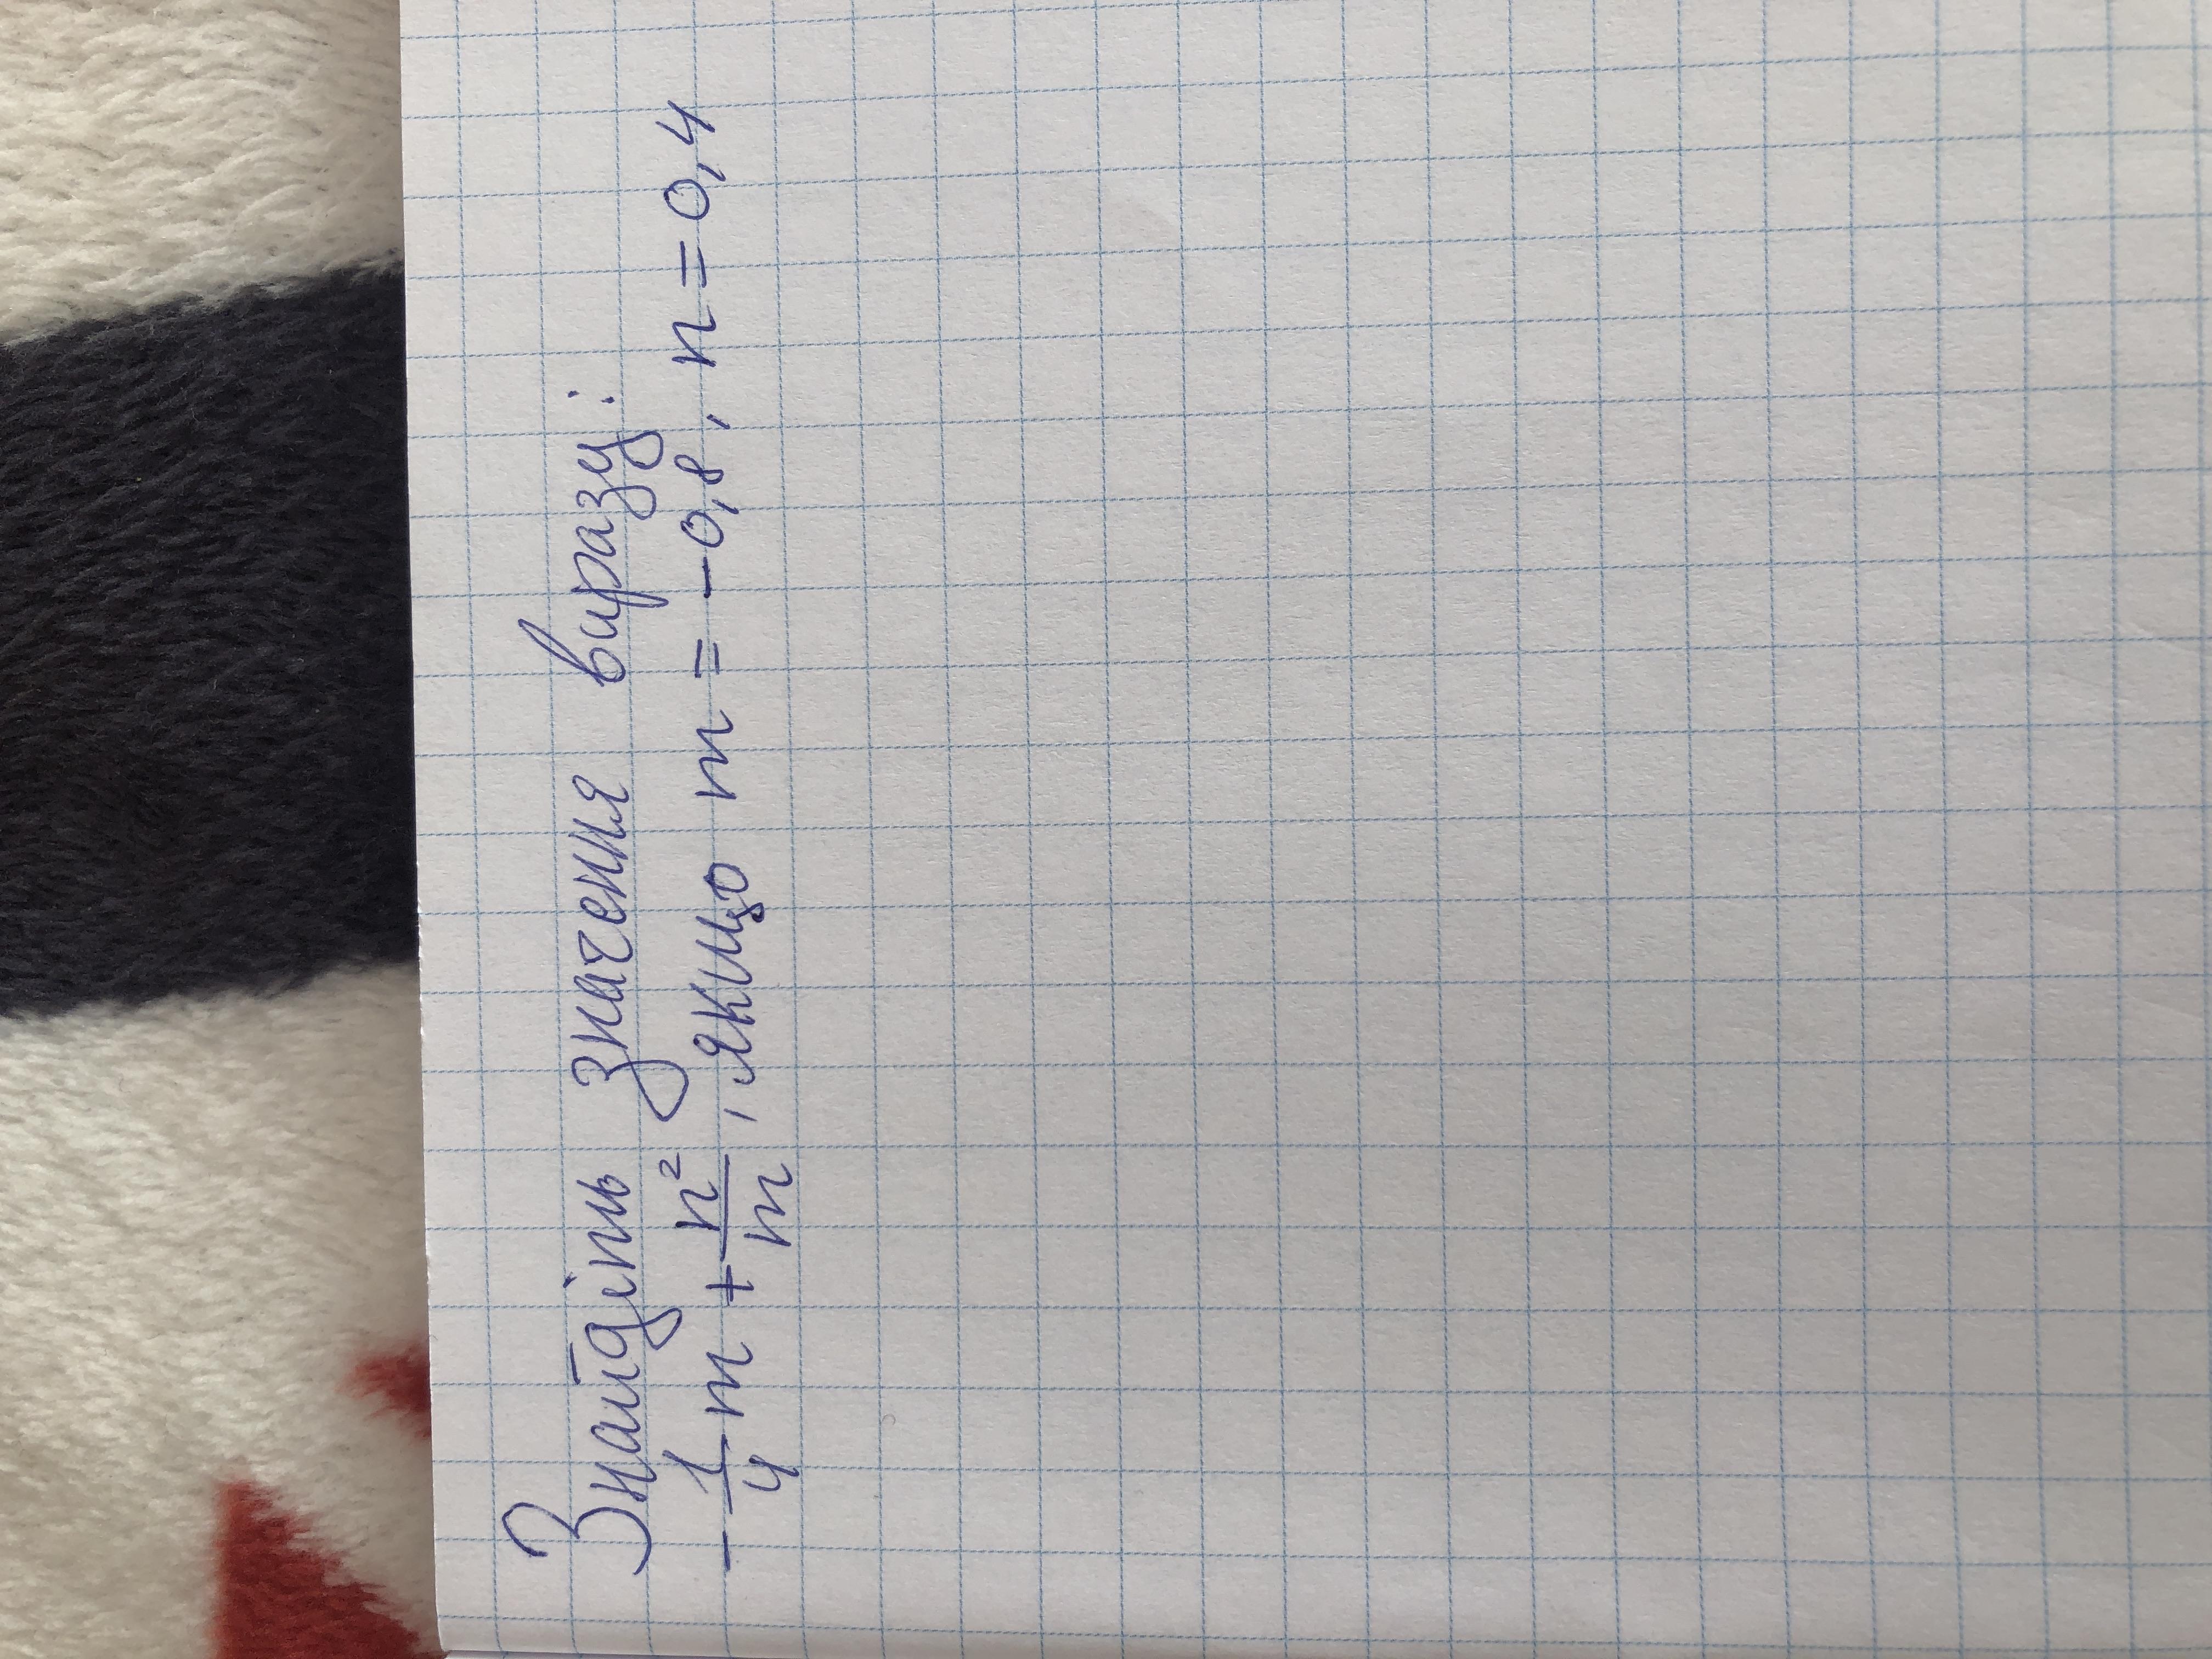 Знайдіть значення виразу:
-1/4 m + n²/m, якщо m = -0,8, n = 0,4